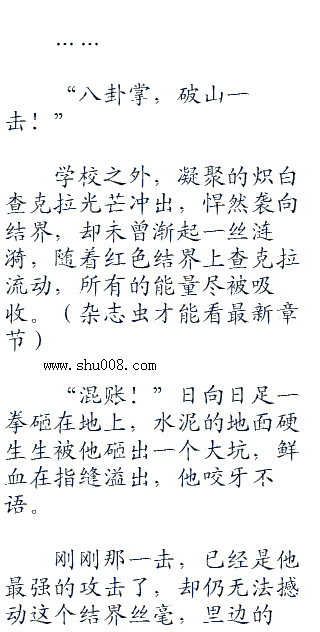 ……
“八卦掌，破山一
击！”
学校之外，凝聚的炽白
查克拉光芒冲出，悍然袭向
结界，却未曾渐起一丝涟
漪，随着红色结界上查克拉
流动，所有的能量尽被吸
收。（杂志虫才能看最新章
节）
www.shu008.com
“混账！”日向日足一
拳砸在地上，水泥的地面硬
生生被他砸出一个大坑，鲜
血在指缝溢出，他咬牙不
语。
刚刚那一击，已经是他
最强的攻击了，却仍无法撼
动这个结界丝毫，里边的